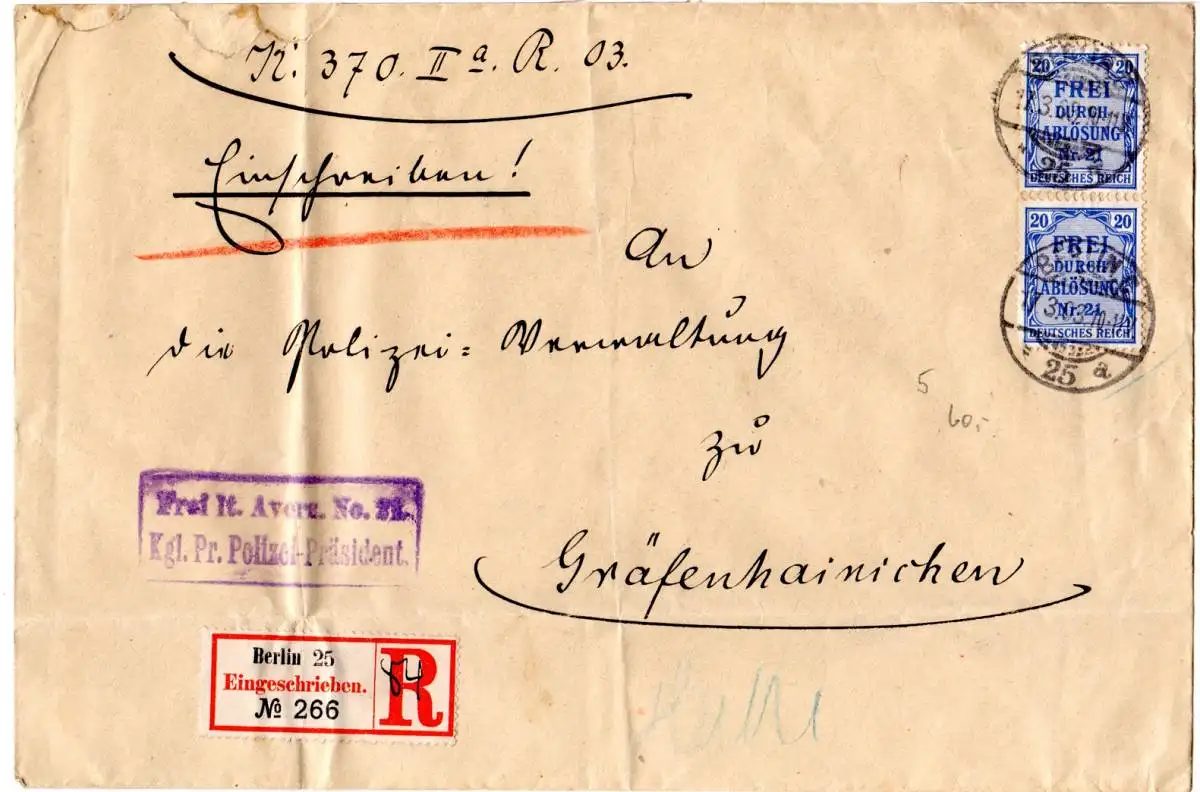 K. 370. II a. R. 03.
Einschreiben!
An
die Polizei=Verwaltung
zu
Gräfenhainichen
20 20
FREI
DURCH
ABLÖSUNG
Nr. 21
DEUTSCHES REICH
25
20 20
FREI
DURCH
ABLÖSUNG
Nr. 21
DEUTSCHES REICH
BERLIN
25 a
5
60,-
Frei lt. Avers. No. 21.
Kgl. Pr. Polizei-Präsident.
Berlin 25
Eingeschrieben.
№ 266
R
84
Halle